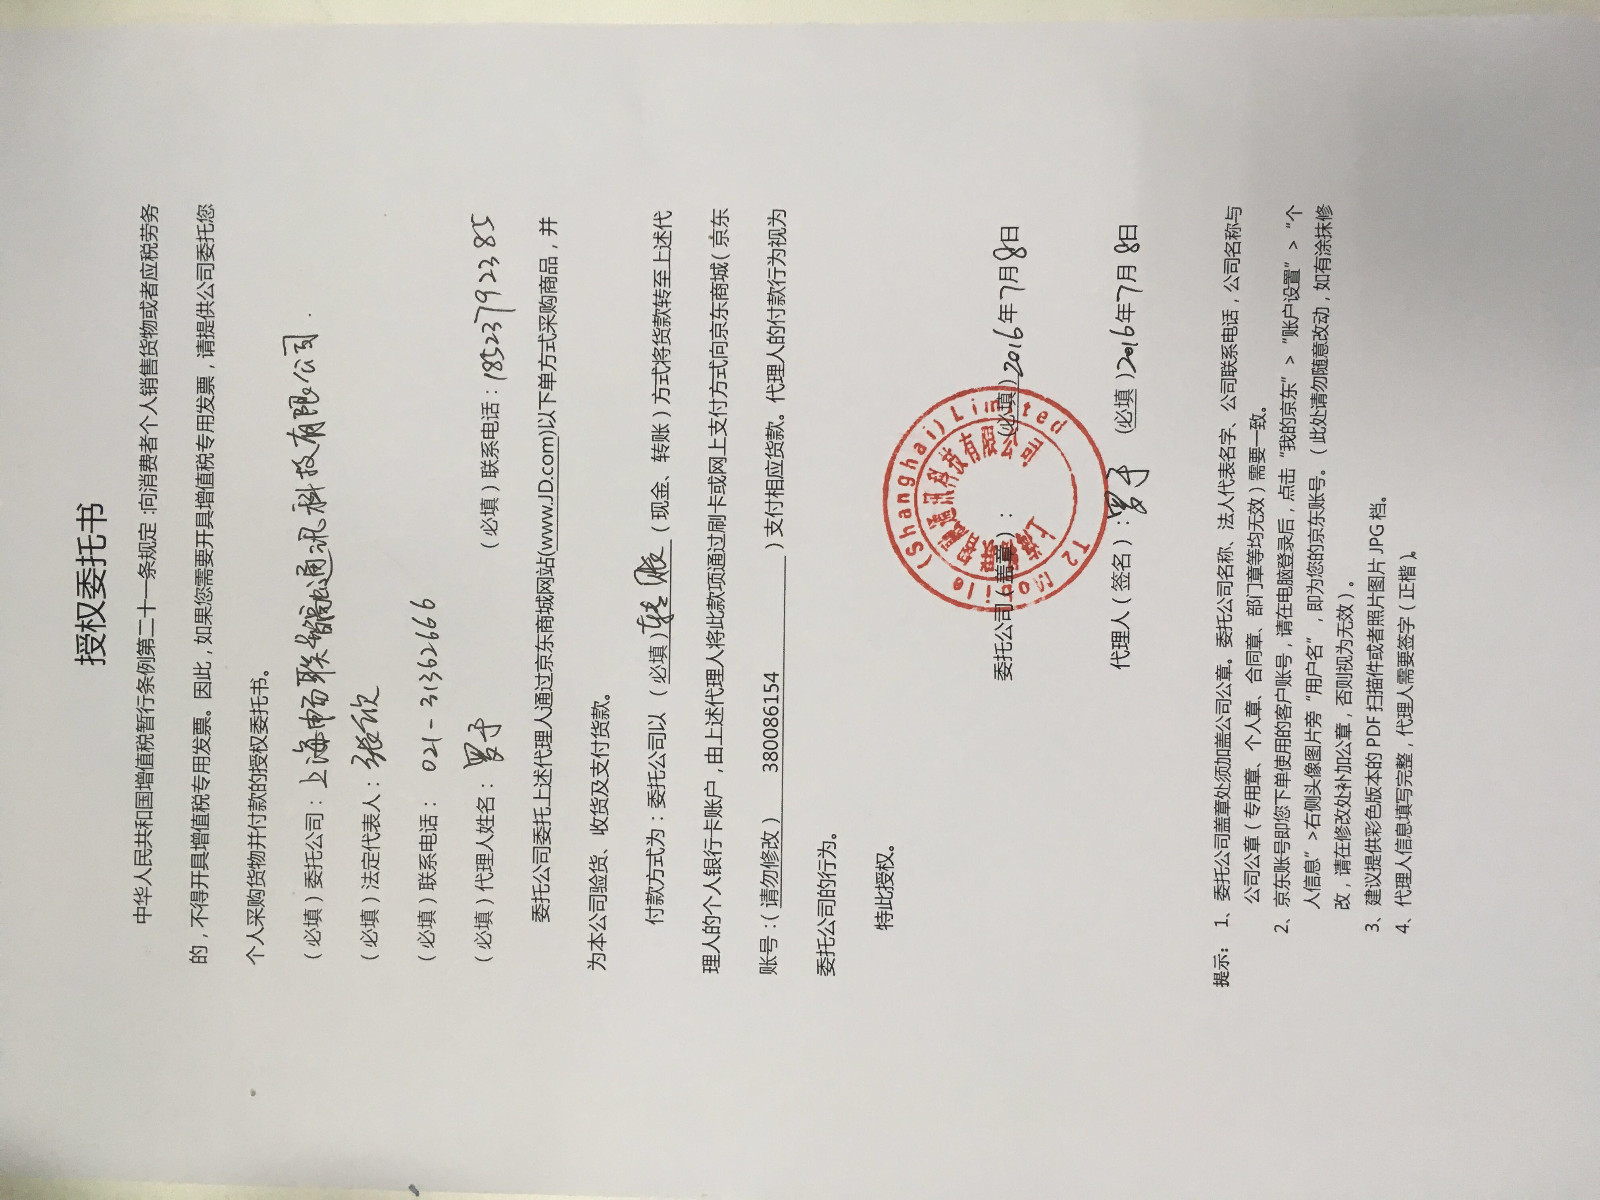 授权委托书
中华人民共和国增值税暂行条例第二十一条规定：向消费者个人销售货物或者应税劳务
的，不得开具增值税专用发票。因此，如果您需要开具增值税专用发票，请提供公司委托您
个人采购货物并付款的授权委托书。
（必填）委托公司：上海畅联智融通讯科技有限公司.
（必填）法定代表人：张欣
（必填）联系电话： 021-31362666
（必填）代理人姓名：罗于 （必填）联系电话：18523792385
委托公司委托上述代理人通过京东商城网站(www.JD.com)以下单方式采购商品，并
为本公司验货、收货及支付货款。
付款方式为：委托公司以 （必填）转账（现金、转账）方式将货款转至上述代
理人的个人银行卡账户，由上述代理人将此款项通过刷卡或网上支付方式向京东商城（京东
账号：（请勿修改） 380086154 ）支付相应货款。代理人的付款行为视为
委托公司的行为。
特此授权。
T2 Mobile (Shanghai) Limited
上海畅联智融通讯科技有限公司
委托公司（盖章）： （必填）2016年7月8日
代理人（签名）：罗于 （必填）2016年7月8日
提示： 1、委托公司盖章处须加盖公司公章。委托公司名称、法人代表名字、公司联系电话，公司名称与
公司公章（专用章、个人章、合同章、部门章等均无效）需要一致。
2、京东账号即您下单使用的客户账号，请在电脑登录后，点击“我的京东”>“账户设置”>“个
人信息”>右侧头像图片旁“用户名”，即为您的京东账号。（此处请勿随意改动，如有涂抹修
改，请在修改处补加公章，否则视为无效）。
3、建议提供彩色版本的 PDF 扫描件或者照片图片 JPG 档。
4、代理人信息填写完整，代理人需要签字（正楷）。